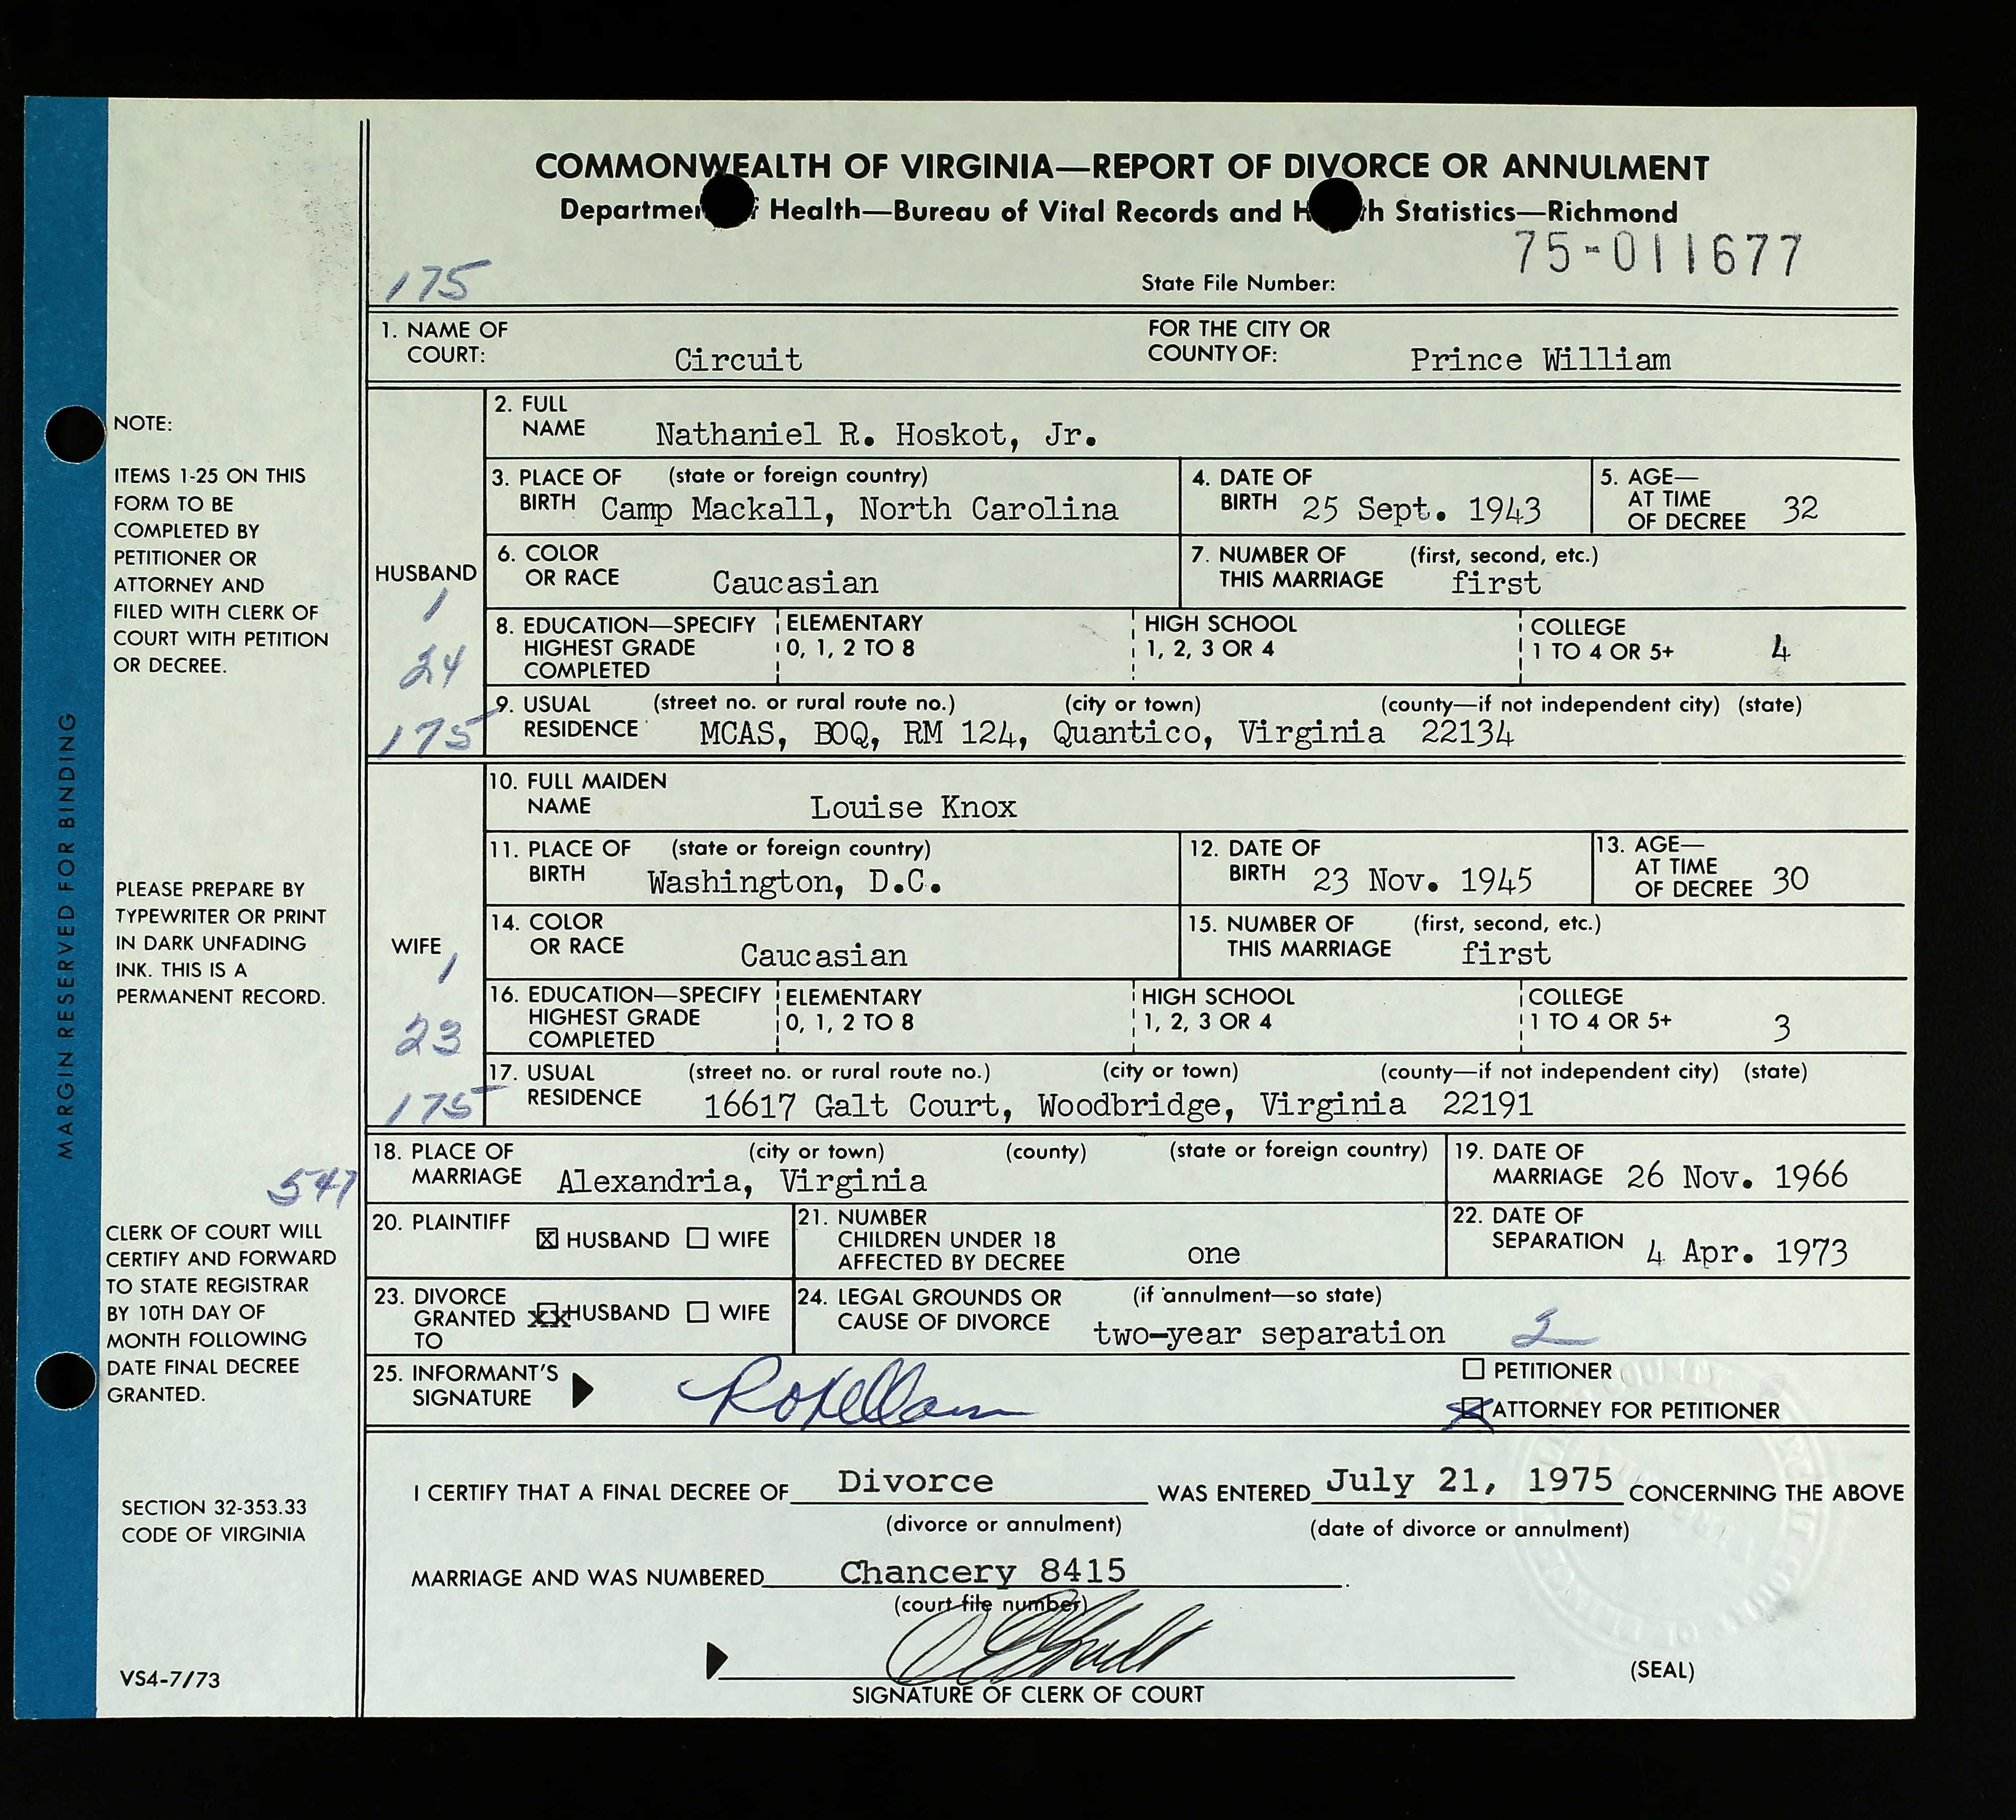 COMMONWEALTH OF VIRGINIA—REPORT OF DIVORCE OR ANNULMENT
Departmen f Health—Bureau of Vital Records and H th Statistics—Richmond
75-011677
175
State File Number:
1. NAME OF COURT: Circuit FOR THE CITY OR COUNTY OF: Prince William
HUSBAND
1
24
175
2. FULL NAME Nathaniel R. Hoskot, Jr.
3. PLACE OF BIRTH (state or foreign country) Camp Mackall, North Carolina
4. DATE OF BIRTH 25 Sept. 1943
5. AGE— AT TIME OF DECREE 32
6. COLOR OR RACE Caucasian
7. NUMBER OF THIS MARRIAGE (first, second, etc.) first
8. EDUCATION—SPECIFY HIGHEST GRADE COMPLETED
ELEMENTARY 0, 1, 2 TO 8
HIGH SCHOOL 1, 2, 3 OR 4
COLLEGE 1 TO 4 OR 5+ 4
9. USUAL RESIDENCE (street no. or rural route no.) (city or town) (county—if not independent city) (state)
MCAS, BOQ, RM 124, Quantico, Virginia 22134
WIFE
1
23
175
10. FULL MAIDEN NAME Louise Knox
11. PLACE OF BIRTH (state or foreign country) Washington, D.C.
12. DATE OF BIRTH 23 Nov. 1945
13. AGE— AT TIME OF DECREE 30
14. COLOR OR RACE Caucasian
15. NUMBER OF THIS MARRIAGE (first, second, etc.) first
16. EDUCATION—SPECIFY HIGHEST GRADE COMPLETED
ELEMENTARY 0, 1, 2 TO 8
HIGH SCHOOL 1, 2, 3 OR 4
COLLEGE 1 TO 4 OR 5+ 3
17. USUAL RESIDENCE (street no. or rural route no.) (city or town) (county—if not independent city) (state)
16617 Galt Court, Woodbridge, Virginia 22191
18. PLACE OF MARRIAGE (city or town) (county) (state or foreign country)
Alexandria, Virginia
19. DATE OF MARRIAGE 26 Nov. 1966
20. PLAINTIFF X HUSBAND WIFE
21. NUMBER CHILDREN UNDER 18 AFFECTED BY DECREE one
22. DATE OF SEPARATION 4 Apr. 1973
23. DIVORCE GRANTED TO XX HUSBAND WIFE
24. LEGAL GROUNDS OR CAUSE OF DIVORCE (if annulment—so state)
two-year separation 2
25. INFORMANT'S SIGNATURE
PETITIONER
ATTORNEY FOR PETITIONER
I CERTIFY THAT A FINAL DECREE OF Divorce WAS ENTERED July 21, 1975 CONCERNING THE ABOVE
(divorce or annulment) (date of divorce or annulment)
MARRIAGE AND WAS NUMBERED Chancery 8415.
(court file number)
SIGNATURE OF CLERK OF COURT
(SEAL)
MARGIN RESERVED FOR BINDING
NOTE:
ITEMS 1-25 ON THIS
FORM TO BE
COMPLETED BY
PETITIONER OR
ATTORNEY AND
FILED WITH CLERK OF
COURT WITH PETITION
OR DECREE.
PLEASE PREPARE BY
TYPEWRITER OR PRINT
IN DARK UNFADING
INK. THIS IS A
PERMANENT RECORD.
547
CLERK OF COURT WILL
CERTIFY AND FORWARD
TO STATE REGISTRAR
BY 10TH DAY OF
MONTH FOLLOWING
DATE FINAL DECREE
GRANTED.
SECTION 32-353.33
CODE OF VIRGINIA
VS4-7/73